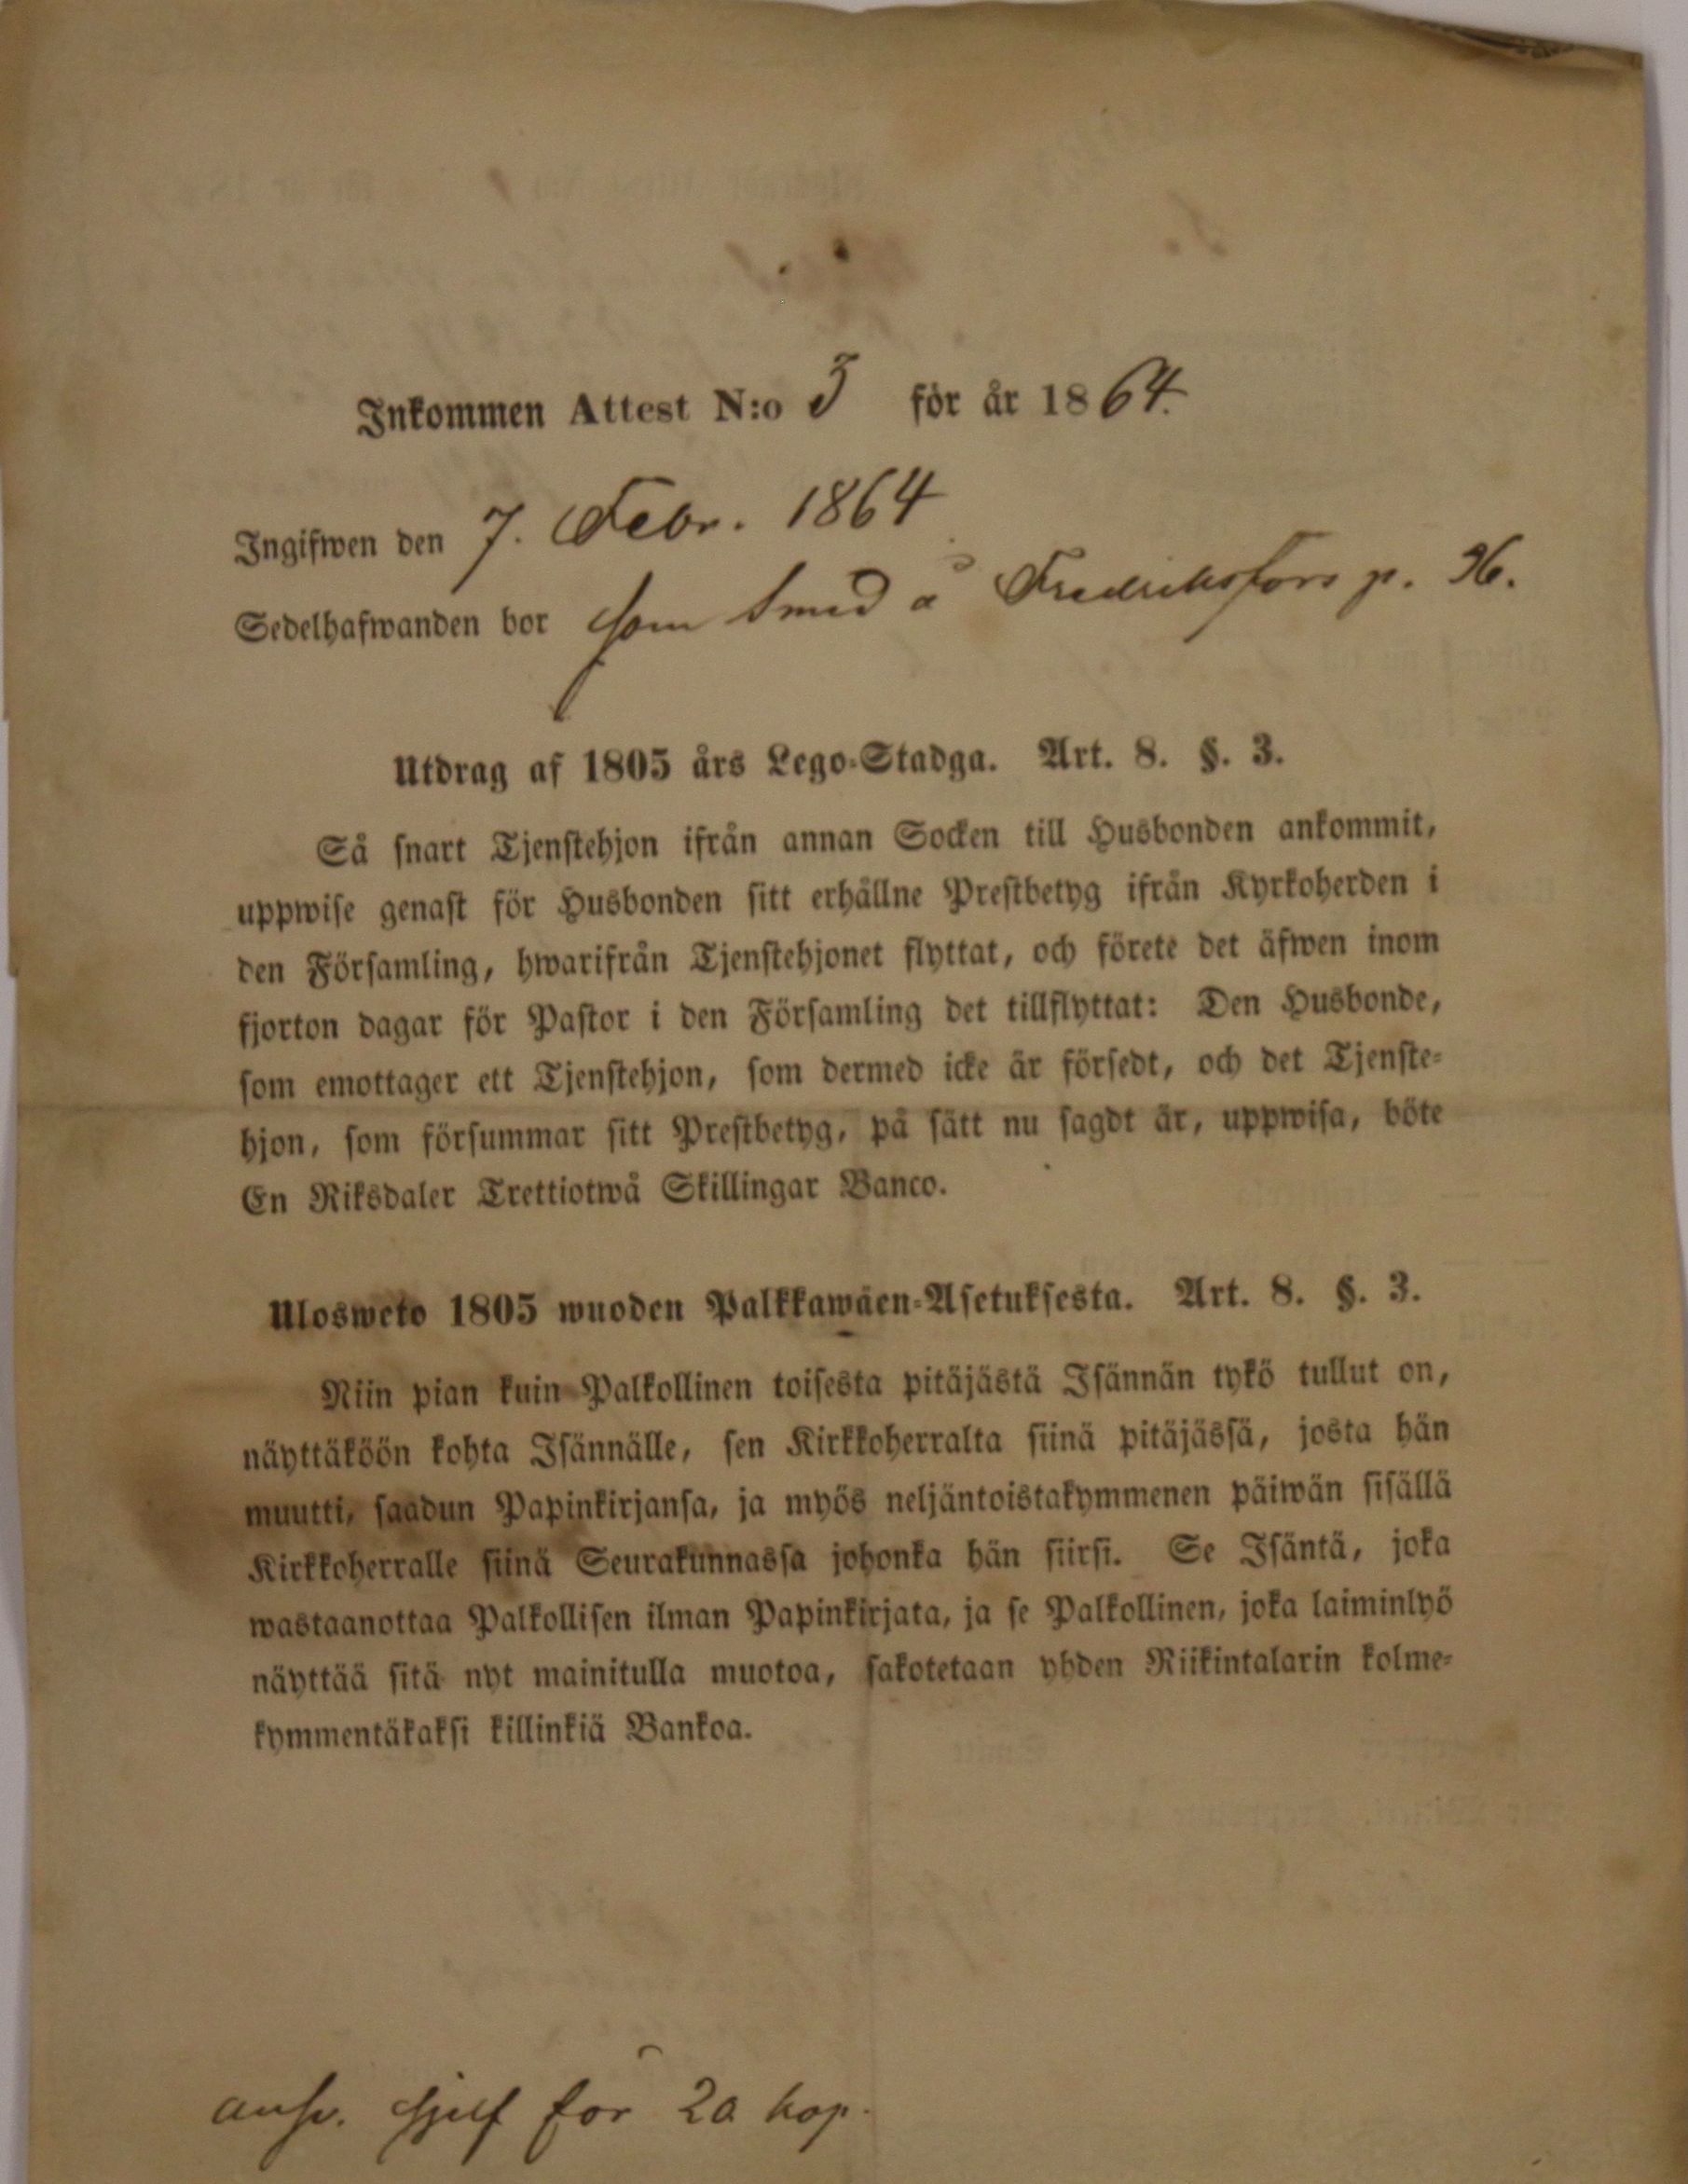 Inkommen Attest N:o 3 för år 1864.
Ingifwen den 7. Febr. 1864
Sedelhafwanden bor som Smed å Fredriksfors p. 96.
Utdrag af 1805 års Lego-Stadga. Art. 8. §. 3.
Så snart Tjenstehjon ifrån annan Socken till Husbonden ankommit,
uppwise genast för Husbonden sitt erhållne Prestbetyg ifrån Kyrkoherden i
den Församling, hwarifrån Tjenstehjonet flyttat, och förete det äfwen inom
fjorton dagar för Pastor i den Församling det tillflyttat: Den Husbonde,
som emottager ett Tjenstehjon, som dermed icke är försedt, och det Tjenste-
hjon, som försummar sitt Prestbetyg, på sätt nu sagdt är, uppwisa, böte
En Riksdaler Trettiotwå Skillingar Banco.
Ulosweto 1805 wuoden Palkkawäen-Asetuksesta. Art. 8. §. 3.
Niin pian kuin Palkollinen toisesta pitäjästä Isännän tykö tullut on,
näyttäköön kohta Isännälle, sen Kirkkoherralta siinä pitäjässä, josta hän
muutti, saadun Papinkirjansa, ja myös neljäntoistakymmenen päiwän sisällä
Kirkkoherralle siinä Seurakunnassa johonka hän siirsi. Se Isäntä, joka
wastaanottaa Palkollisen ilman Papinkirjata, ja se Palkollinen, joka laiminlyö
näyttää sitä nyt mainitulla muotoa, sakotetaan yhden Riikintalarin kolme-
kymmentäkaksi killinkiä Bankoa.
answ. sjelf för 20 kop.